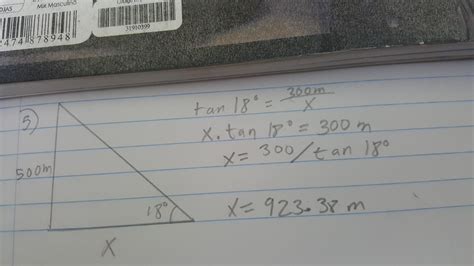 Mix Masculino
2474 878948
31910399
5)
500m
18°
X
tan 18° = 300m / X
X • tan 18° = 300 m
X = 300 / tan 18°
X = 923.38 m